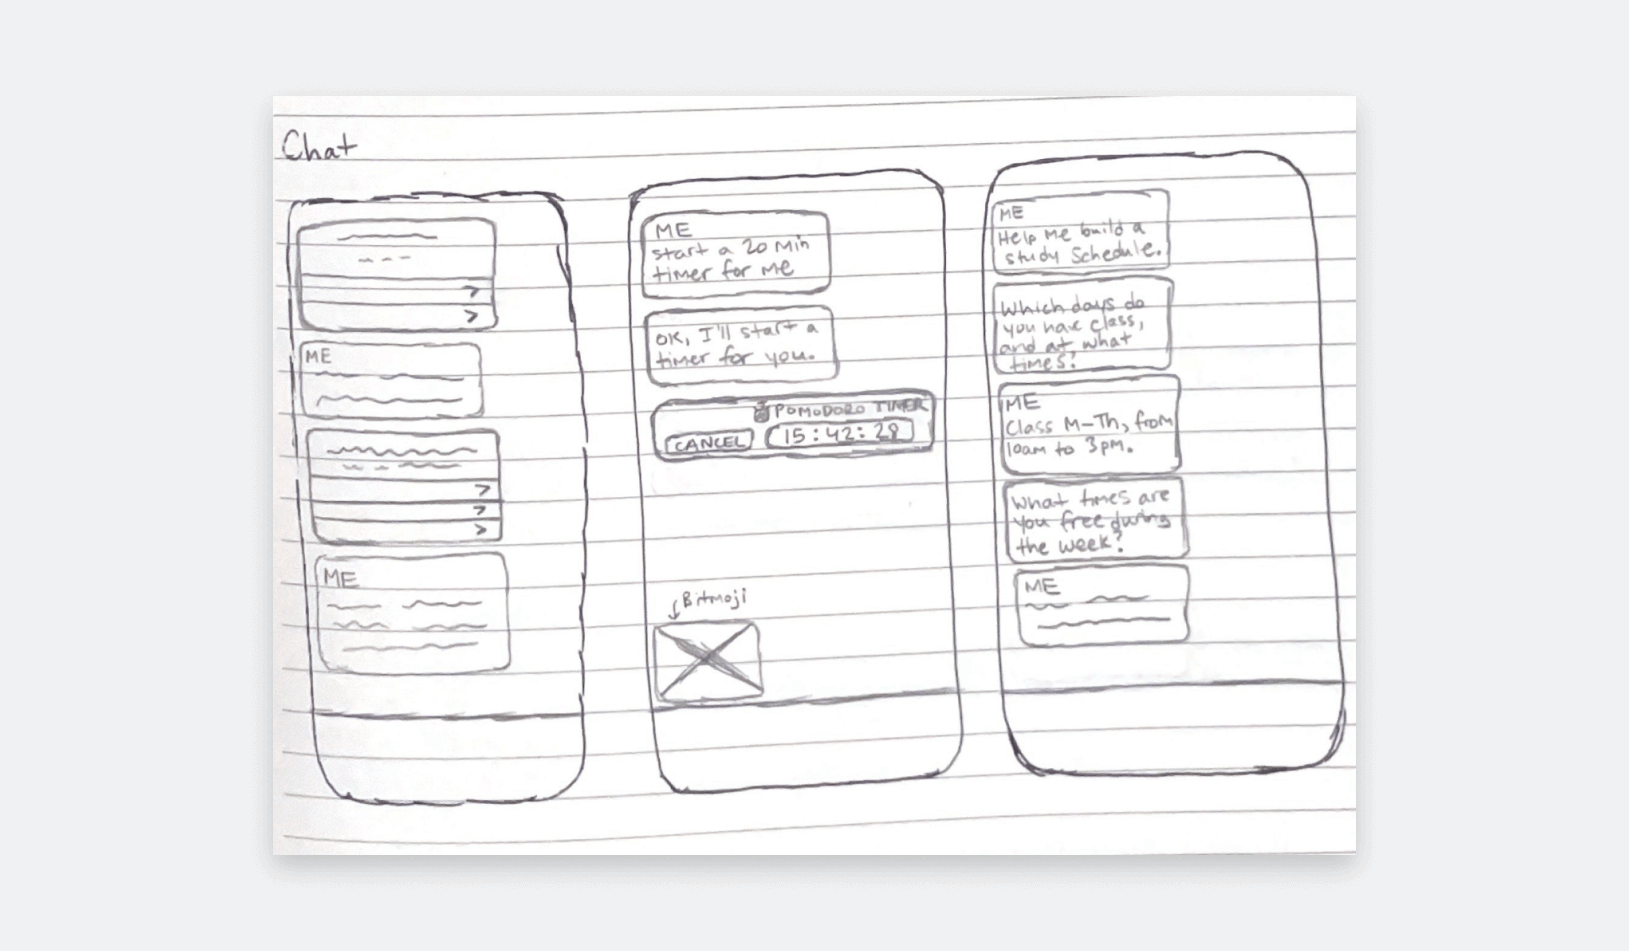 Chat
ME
ME
ME
start a 20 Min
timer for me
OK, I'll start a
timer for you.
POMODORO TIMER
CANCEL
15:42:28
Bitmoji
ME
Help Me build a
study Schedule.
Which days do
you have class,
and at what
times?
ME
Class M-Th, from
10am to 3pm.
What times are
you free during
the week?
ME